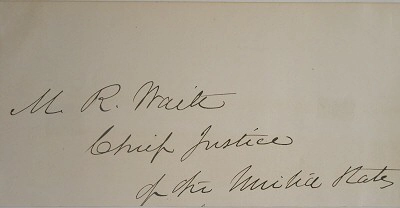 M. R. Waite
Chief Justice
of the United States